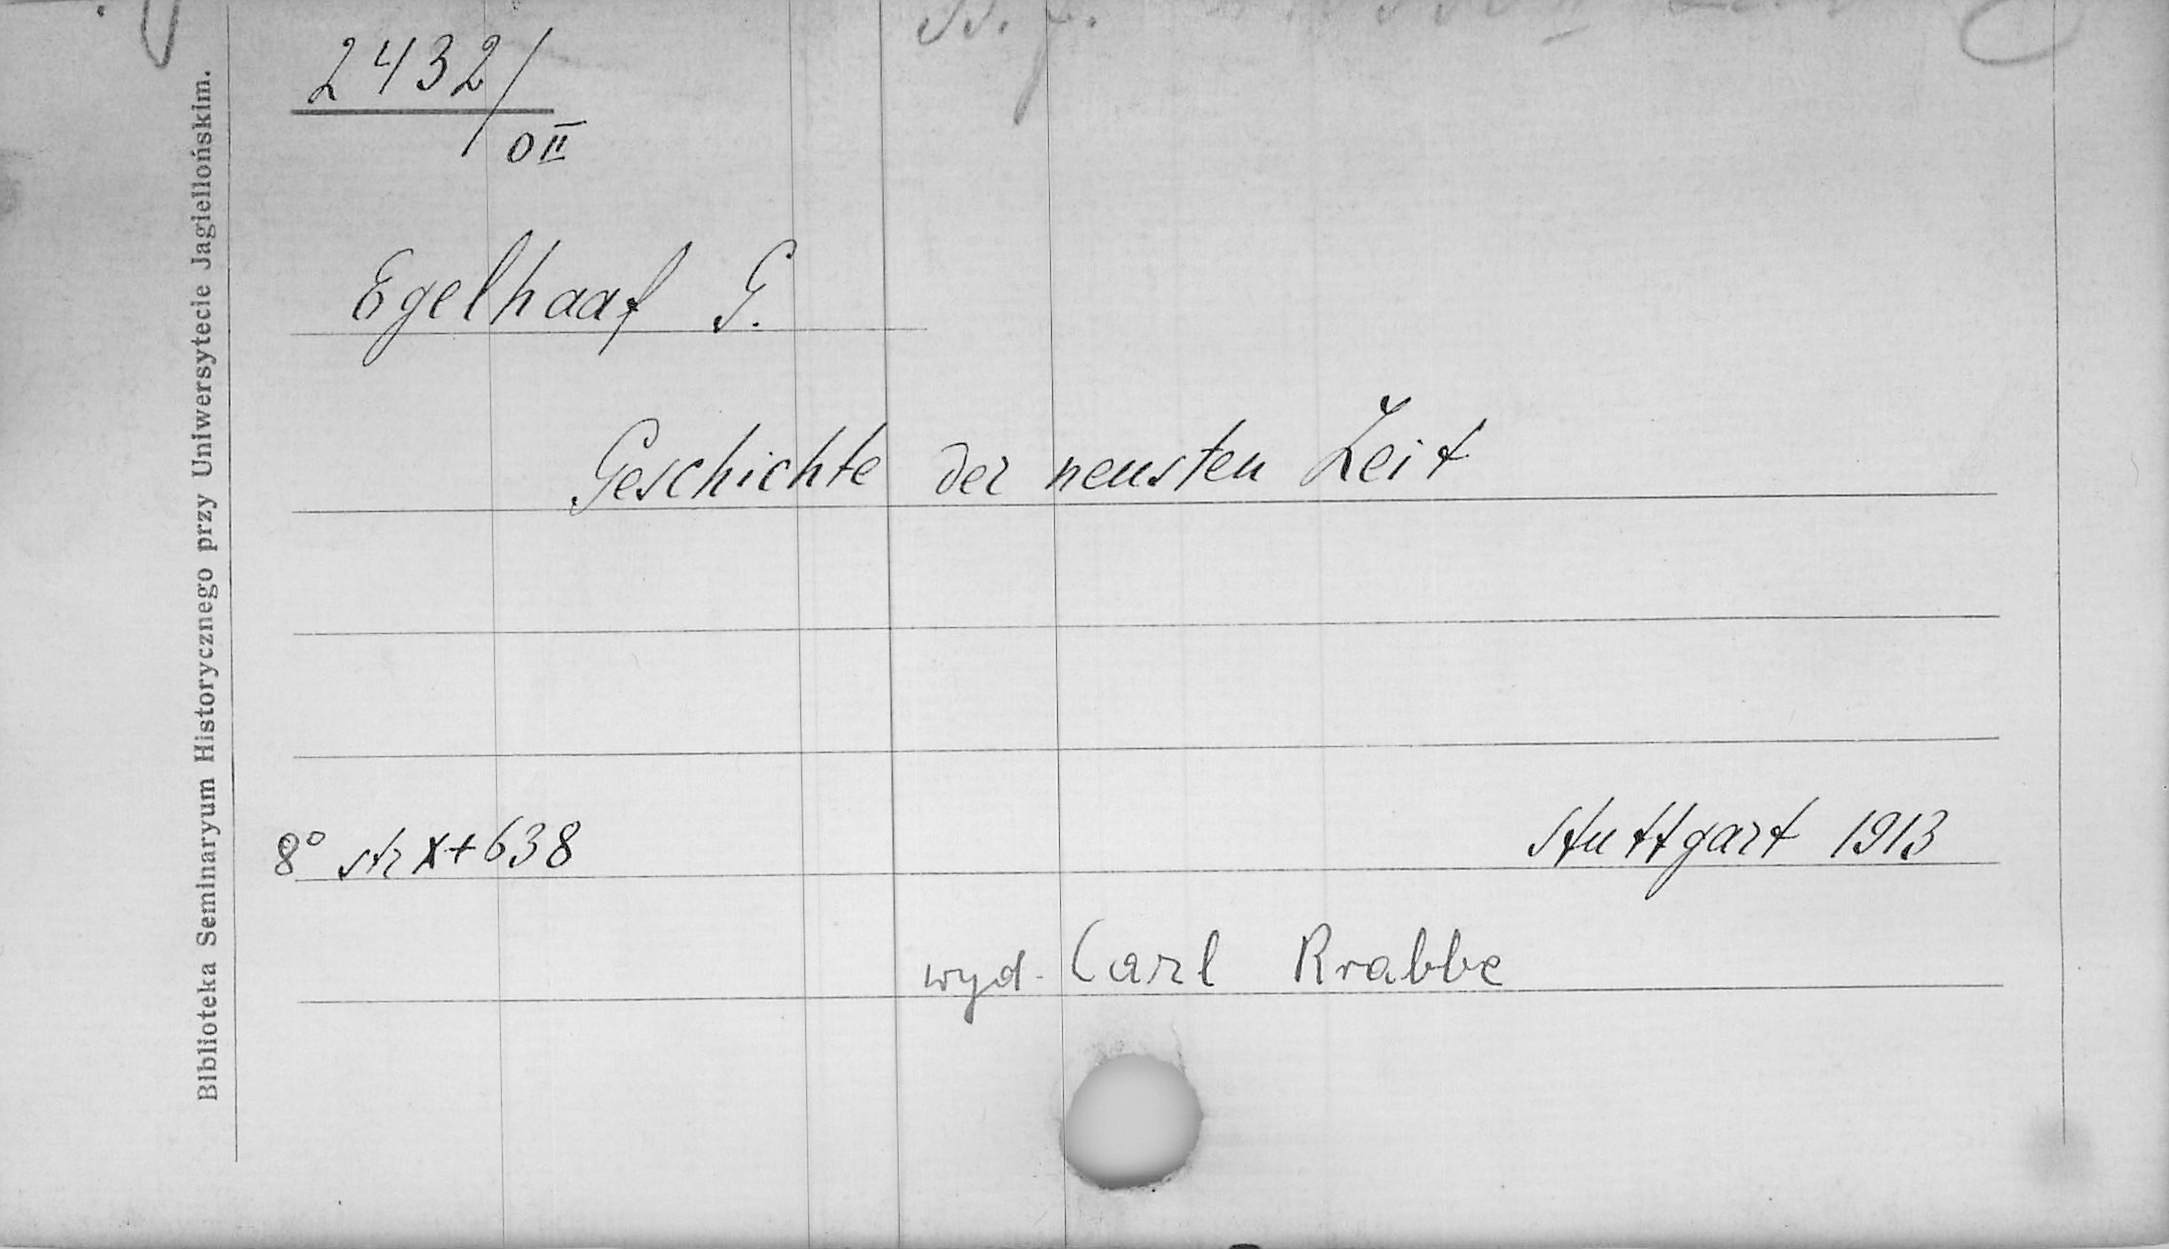 2432/
O II
Egelhaaf G.
Geschichte der neusten Zeit
8° str X+638
Stuttgart 1913
wyd. Carl Krabbe
Biblioteka Seminaryum Historycznego przy Uniwersytecie Jagiellońskim.